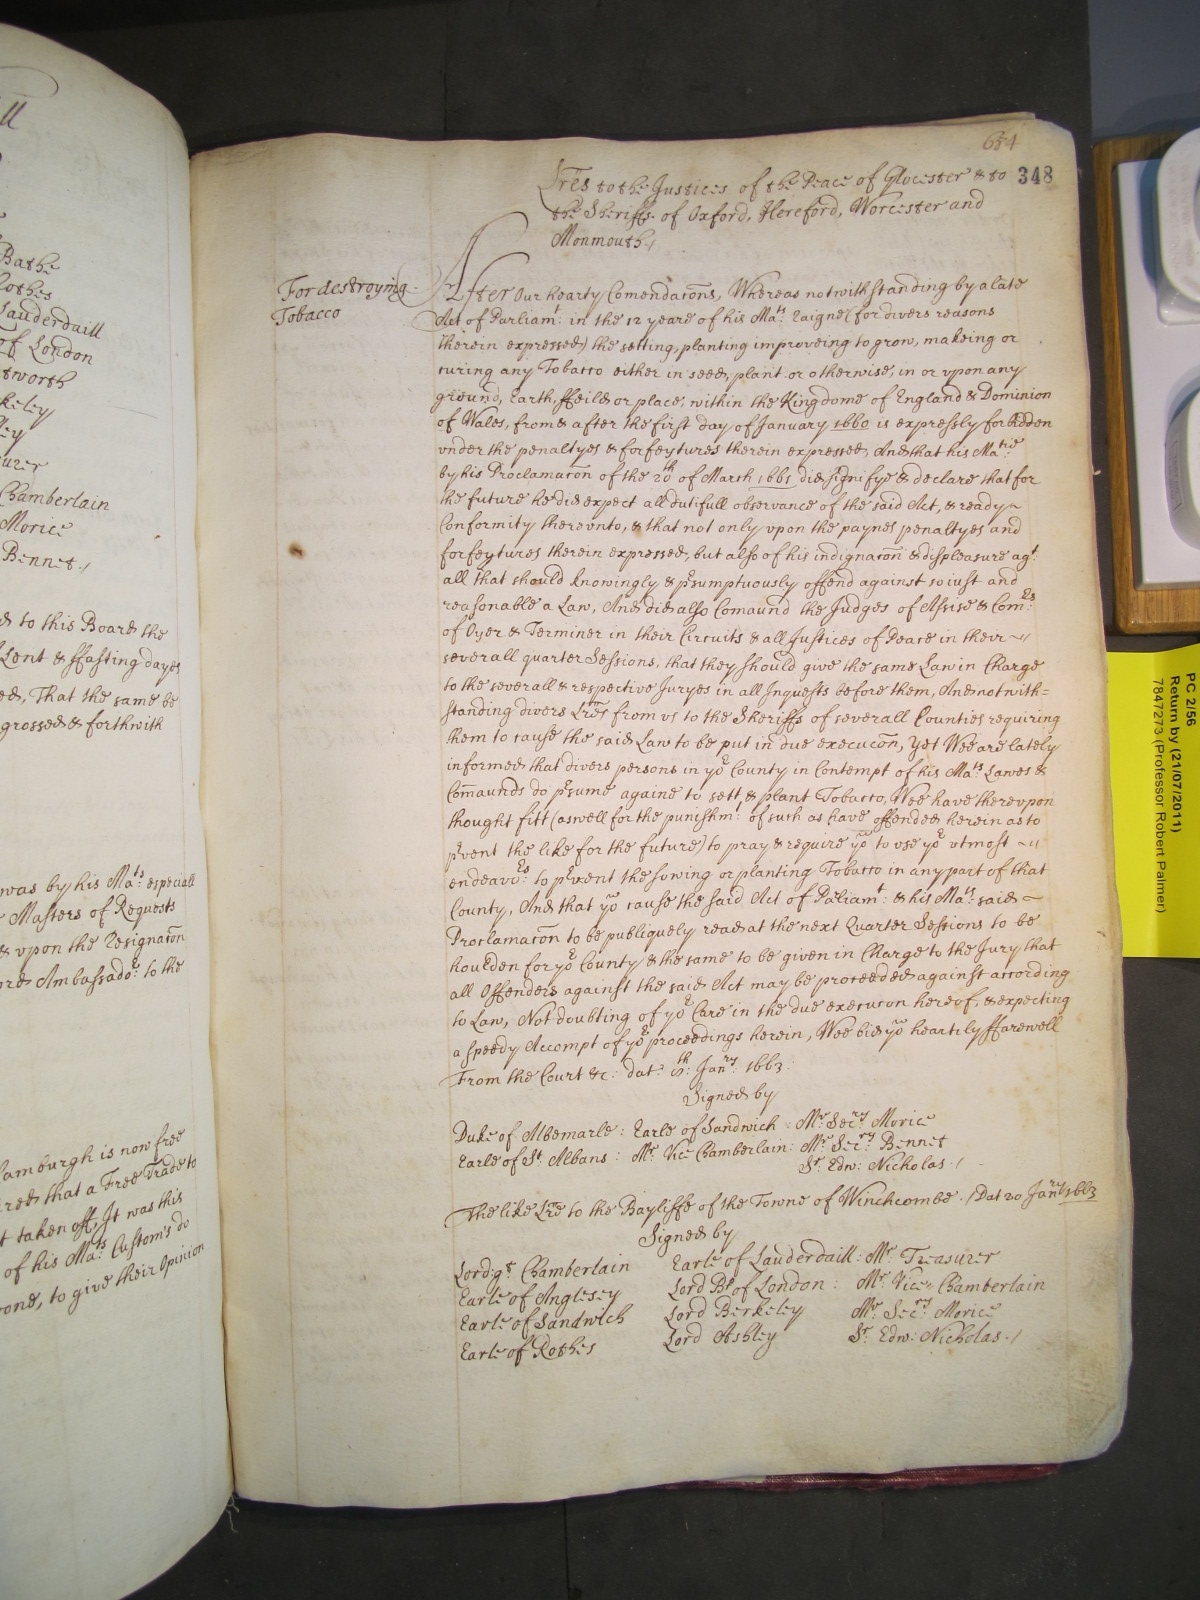 ll
Bathe
Lothes
Lauderdaill
of London
tworth
keley
ley
urer
Chamberlain
Morice
Bennet./
d to this Board the
Lent & ffasting dayes
ed, That the same be
grossed & forthwith
was by his Ma:ts especiall
Masters of Requests
& vpon the Resignacõn
Ambassado:r to the
Hamburgh is now free
ired that a Free Trade to
t taken off, It was this
of his Ma:ts Custom's do
to give their Opinion
684
348
Lr̃es to the Justices of the Peace of Glocester & to
the Sheriffs of Oxford, Hereford, Worcester and
Monmouth./
For destroying
Tobacco
After Our hearty Com̃endacõns, Whereas notwithstanding by a late
Act of Parliam:t in the 12 yeare of his Ma:ts Raigne (for divers reasons
therein expressed) the setting, planting improveing to grow, makeing or
curing any Tobacco either in seed, plant or otherwise, in or vpon any
ground, Earth, ffeild or place, within the Kingdome of England & Dominion
of Wales, from & after the first day of January 1660 is expressly forbidden
vnder the penaltyes & forfeytures therein expressed, And that his Ma:tie
by his Proclamacõn of the 20th of March 1661 did signifye & declare that for
the future he did expect all dutifull observance of the said Act, & ready
Conformity therevnto, & that not only vpon the paynes penaltyes and
forfeytures therein expressed, but also of his indignacõn & displeasure ag:t
all that should knowingly & p̱sumptuously offend against so iust and
reasonable a Law, And did also Com̃aund the Judges of Assise & Com:rs
of Oyer & Terminer in their Circuits & all Justices of Peace in their
severall quarter Sessions, that they should give the same Law in Charge
to the severall & respective Juryes in all Inquests before them, And notwith=
standing divers Lr̃es from vs to the Sheriffs of severall Counties requiring
them to cause the said Law to be put in due execucõn, yet Wee are lately
informed that divers persons in yo:r County in Contempt of his Ma:ts Lawes &
Com̃aunds do p̱sume againe to sett & plant Tobacco, Wee have therevpon
thought fitt (aswell for the punishm:t of such as have offended herein as to
p̱vent the like for the future) to pray & require yo:u to vse yo:r vtmost
endeavo:rs to p̱vent the sowing or planting Tobacco in any part of that
County, And that yo:u cause the said Act of Paliam:t & his Ma:ts said
Proclamacõn to be publiquely read at the next Quarter Sessions to be
houlden for yo:r County & the same to be given in Charge to the Jury that
all Offenders against the said Act may be proceeded against according
to Law, Not doubting of yo:r Care in the due execucon hereof, & expecting
a speedy Accompt of yo:r proceedings herein, Wee bid yo:u heartily ffarewell
From the Court &c: dat: th Jan:ry 1663.
Signed by
Duke of Albemarle: Earle of Sandwich: Mr. Sec:ry Morice
Earle of St. Albans: Mr. Vice Chamberlain: Mr. Sec:ry Bennet
Sr. Edw: Nicholas./
The like Lr̃e to the Bayliffe of the Towne of Winchcombe./ Dat 20 Jan:ry 1663
Signed by
Lord gt. Chamberlain Earle of Lauderdaill: Mr. Treasurer
Earle of Anglesey Lord Bp. of London: Mr. Vice-Chamberlain
Earle of Sandwich Lord Berkeley Mr. Sec:ry Morice
Earle of Rothes Lord Ashley Sr. Edw: Nicholas./
PC 2/56
Return by (21/07/2011)
7847273 (Professor Robert Palmer)